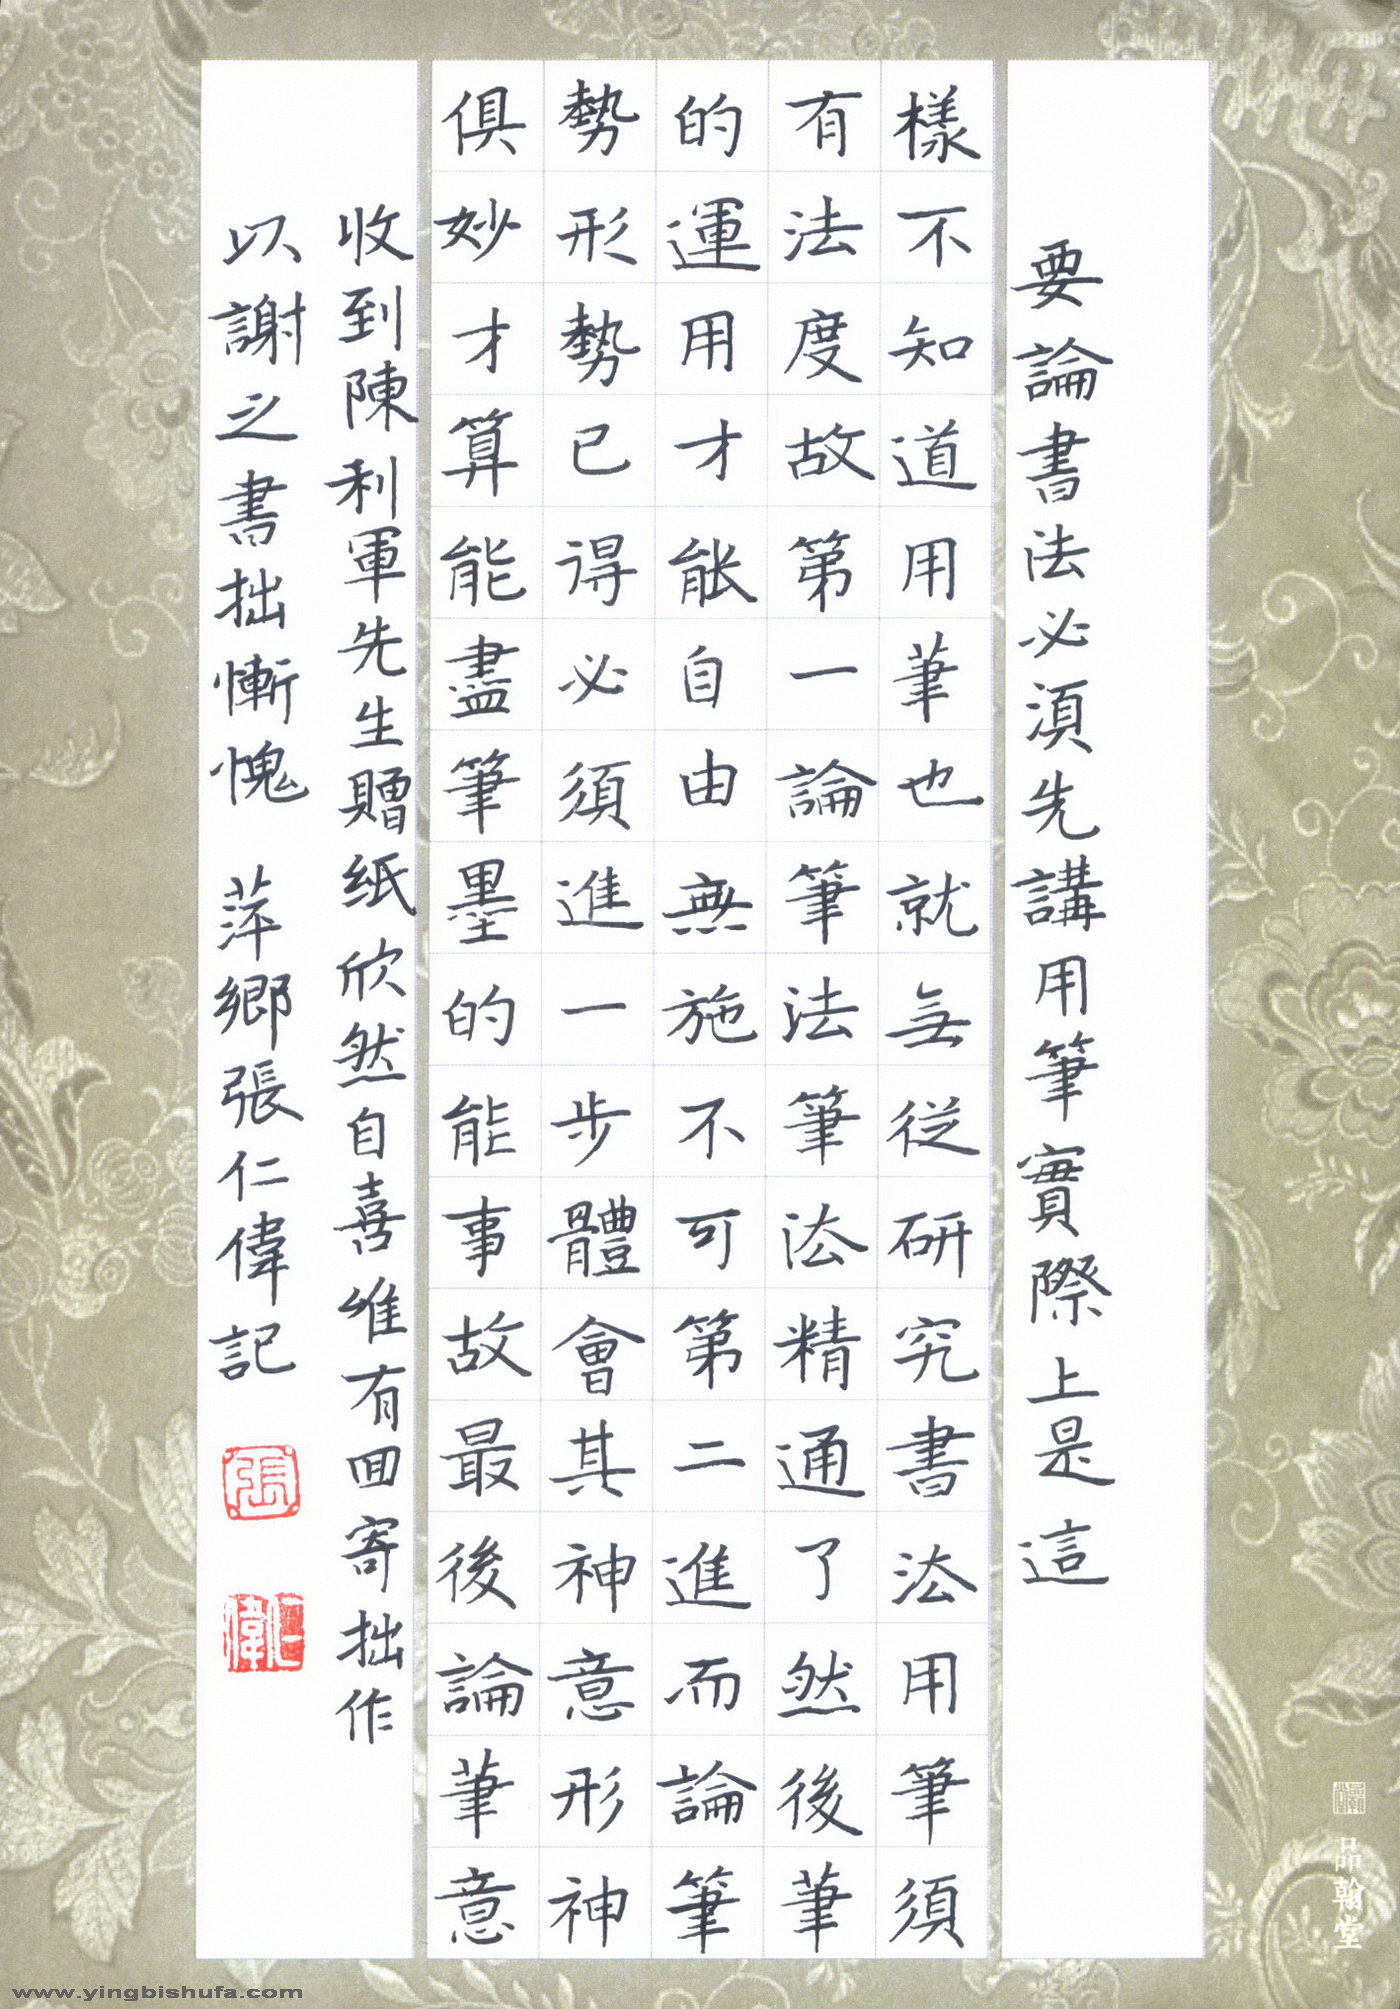 要論書法必須先講用筆實際上是這
樣不知道用筆也就無從研究書法用筆須
有法度故第一論筆法筆法精通了然後筆
的運用才能自由無施不可第二進而論筆
勢形勢已得必須進一步體會其神意形神
俱妙才算能盡筆墨的能事故最後論筆意
收到陳利軍先生贈紙欣然自喜唯有回寄拙作
以謝之書拙慚愧 萍鄉張仁偉記
張
仁偉
品翰堂
www.yingbishufa.com